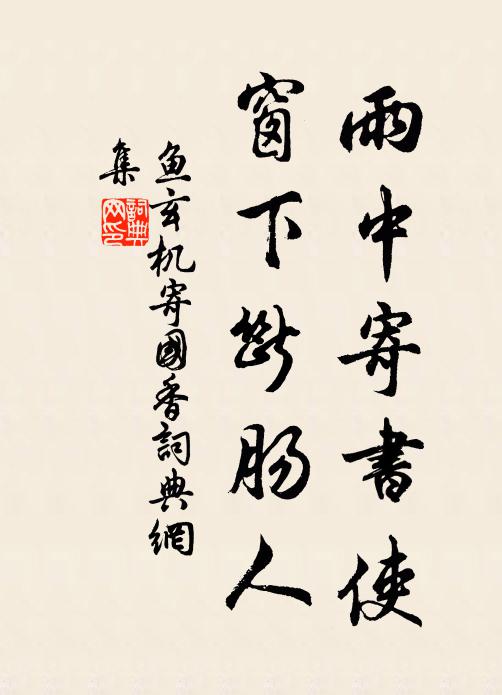 雨中寄書使
窗下斷腸人
鱼玄机寄國香詞典網
集
詞典网印